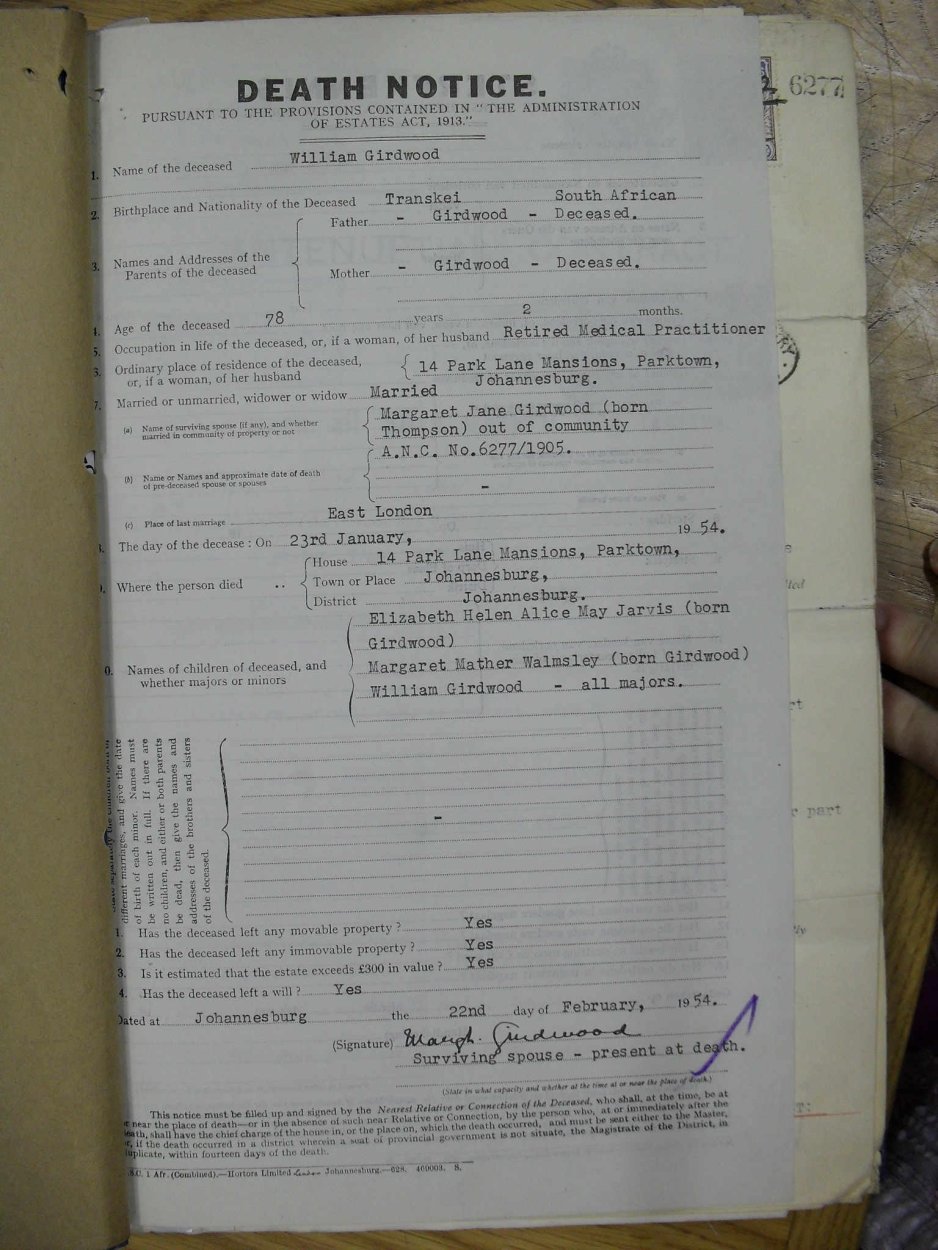 DEATH NOTICE.
PURSUANT TO THE PROVISIONS CONTAINED IN "THE ADMINISTRATION
OF ESTATES ACT, 1913."
6277
1. Name of the deceased William Girdwood
2. Birthplace and Nationality of the Deceased Transkei South African
Father - Girdwood - Deceased.
3. Names and Addresses of the
Parents of the deceased
Mother - Girdwood - Deceased.
4. Age of the deceased 78 years 2 months.
5. Occupation in life of the deceased, or, if a woman, of her husband Retired Medical Practitioner
Ordinary place of residence of the deceased,
or, if a woman, of her husband
14 Park Lane Mansions, Parktown,
Johannesburg.
7. Married or unmarried, widower or widow Married
(a) Name of surviving spouse (if any), and whether
married in community of property or not
Margaret Jane Girdwood (born
Thompson) out of community
A.N.C. No.6277/1905.
(b) Name or Names and approximate date of death
of pre-deceased spouse or spouses
-
(c) Place of last marriage East London
The day of the decease : On 23rd January, 1954.
Where the person died ..
House 14 Park Lane Mansions, Parktown,
Town or Place Johannesburg,
District Johannesburg.
0. Names of children of deceased, and
whether majors or minors
Elizabeth Helen Alice May Jarvis (born
Girdwood)
Margaret Mather Walmsley (born Girdwood)
William Girdwood - all majors.
different marriages, and give the date
of birth of each minor. Names must
be written out in full. If there are
no children, and either or both parents
be dead, then give the names and
addresses of the brothers and sisters
of the deceased.
-
1. Has the deceased left any movable property ? Yes
2. Has the deceased left any immovable property ? Yes
3. Is it estimated that the estate exceeds £300 in value ? Yes
4. Has the deceased left a will ? Yes
Dated at Johannesburg the 22nd day of February, 1954.
(Signature) Margt. Girdwood
Surviving spouse - present at death.
(State in what capacity and whether at the time at or near the place of death.)
This notice must be filled up and signed by the Nearest Relative or Connection of the Deceased, who shall, at the time, be at
or near the place of death—or in the absence of such near Relative or Connection, by the person who, at or immediately after the
death, shall have the chief charge of the house in, or the place on, which the death occurred, and must be sent either to the Master,
or, if the death occurred in a district wherein a seat of provincial government is not situate, the Magistrate of the District, in
duplicate, within fourteen days of the death.
1 Afr. (Combined).—Hortors Limited Johannesburg.—628. 469003. S.
part